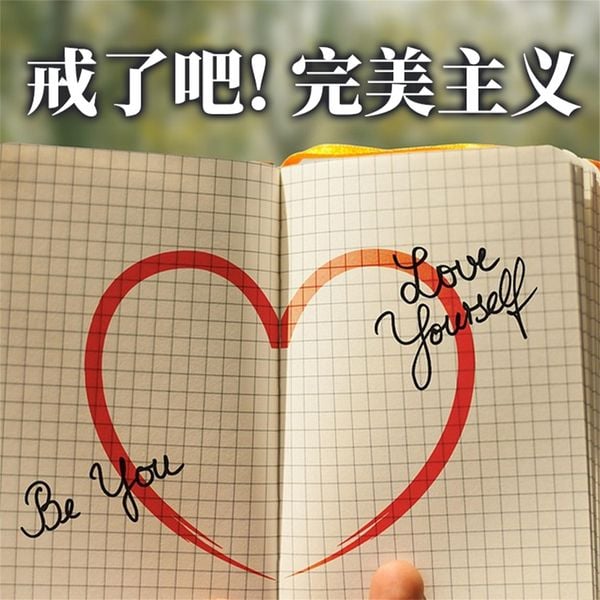 戒了吧! 完美主义
Love
Yourself
Be You